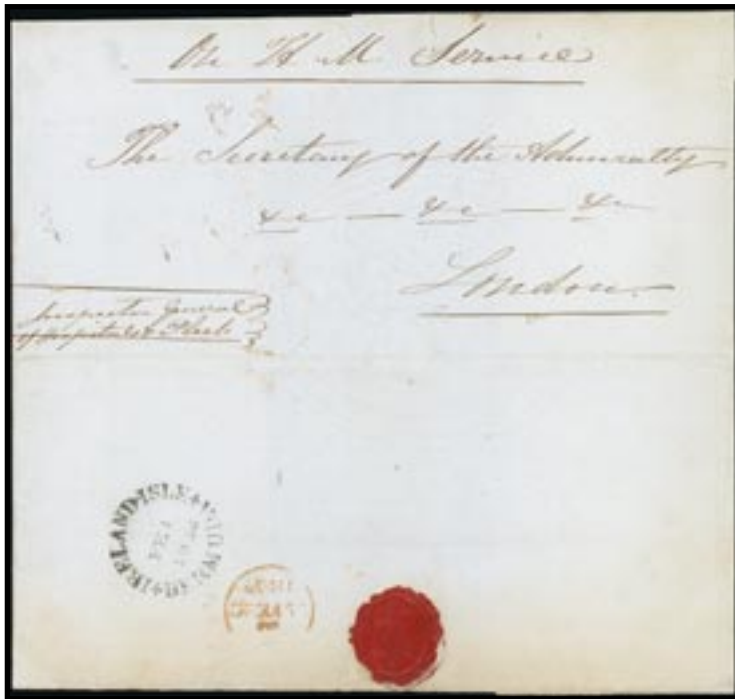 On H M Service
The Secretary of the Admiralty
&c — &c — &c
London
Inspector General
of Hospitals & Fleets
IRELAND ISLE